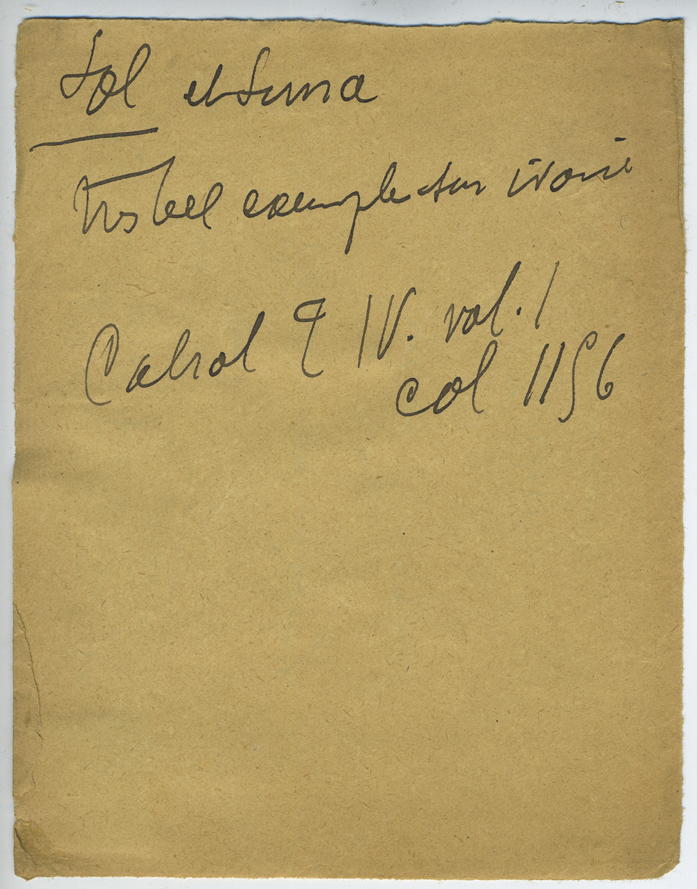 Sol et Luna
Très bel exemple sur ivoire
Cabrol T IV. vol. 1
col 1156